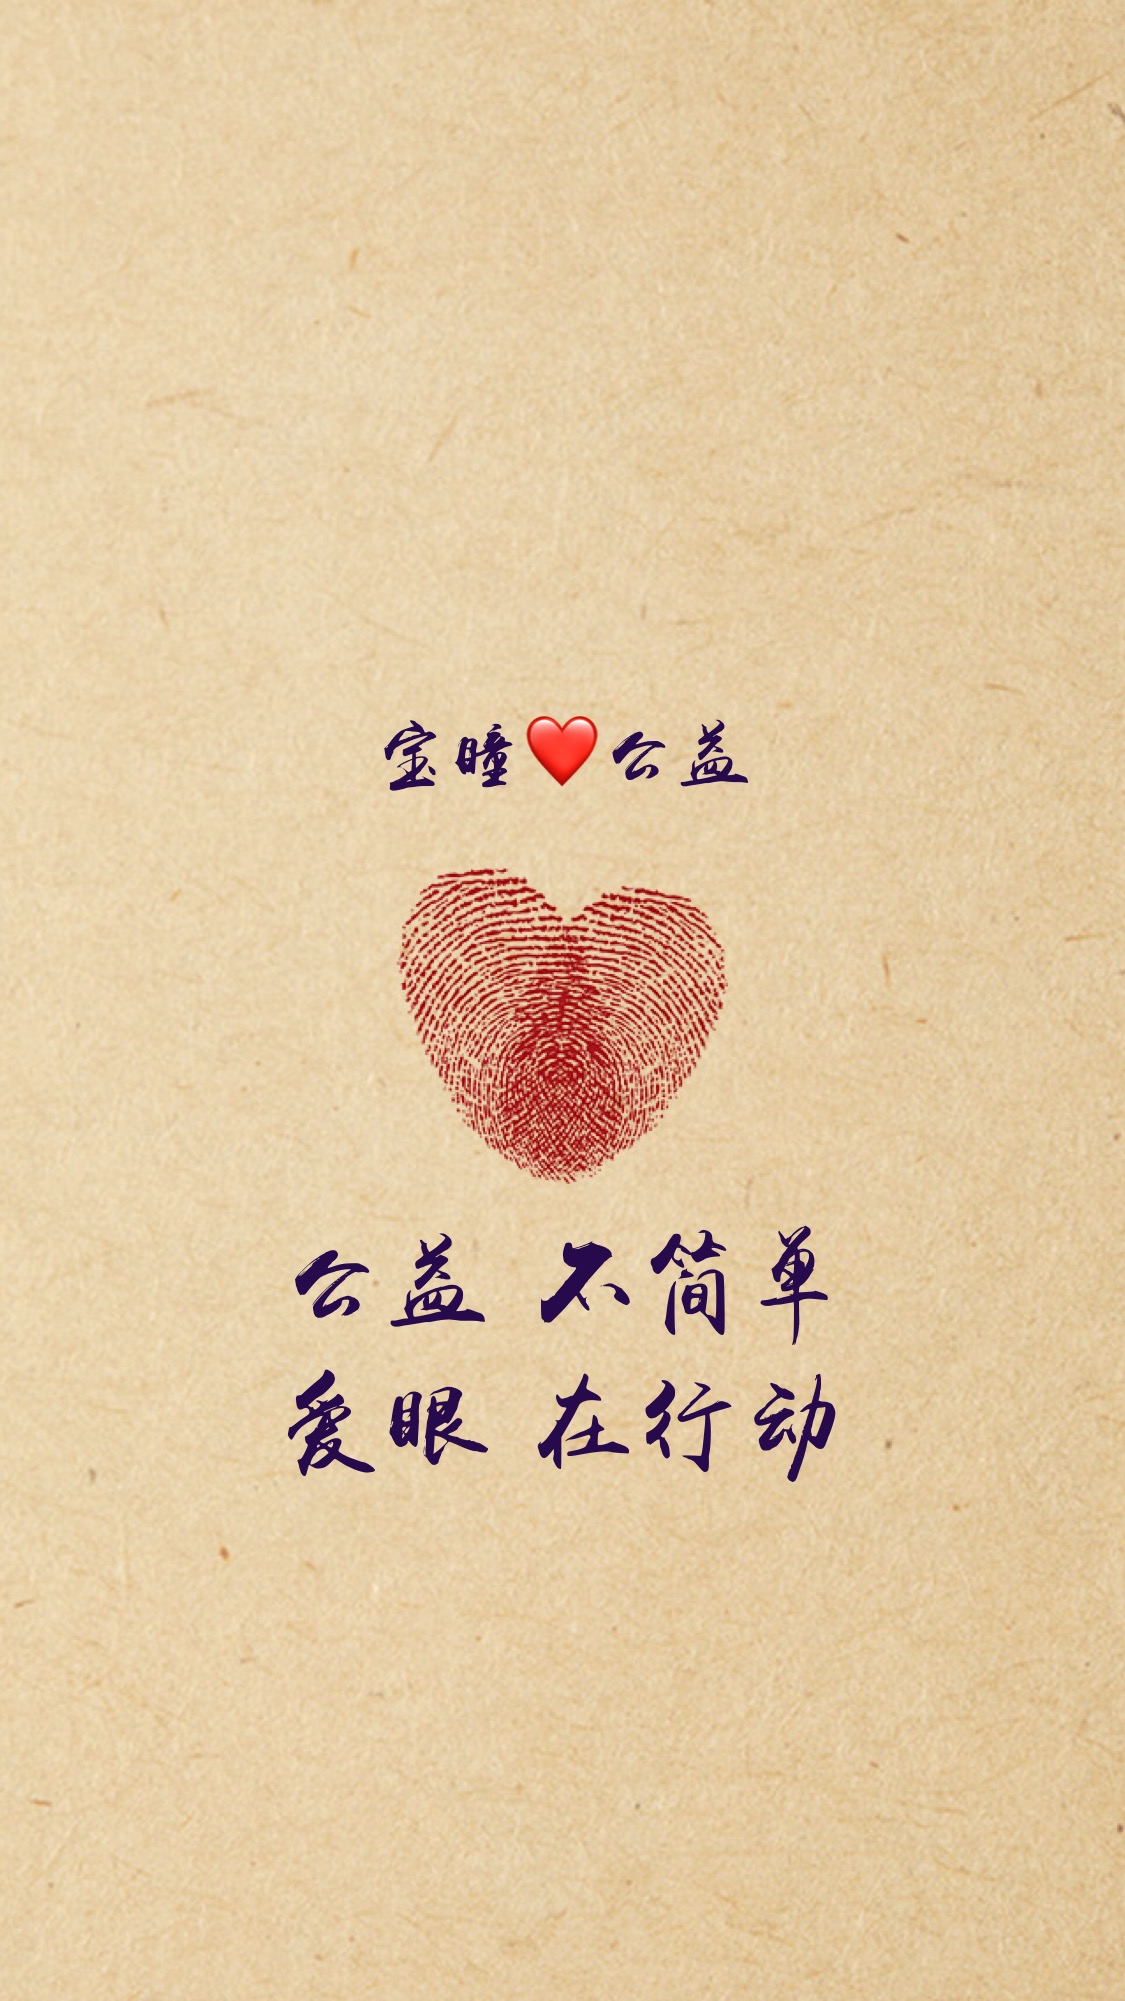 宝瞳❤️公益
公益 不简单
爱眼 在行动